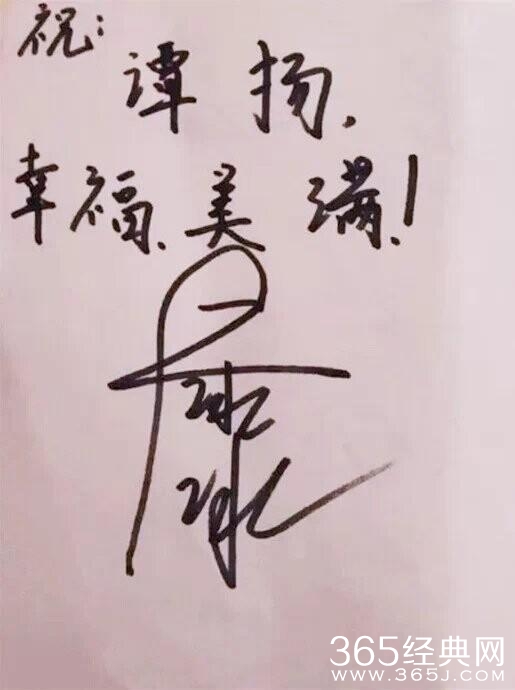 祝：
谭扬，
幸福、美满！
365经典网
www.365J.com